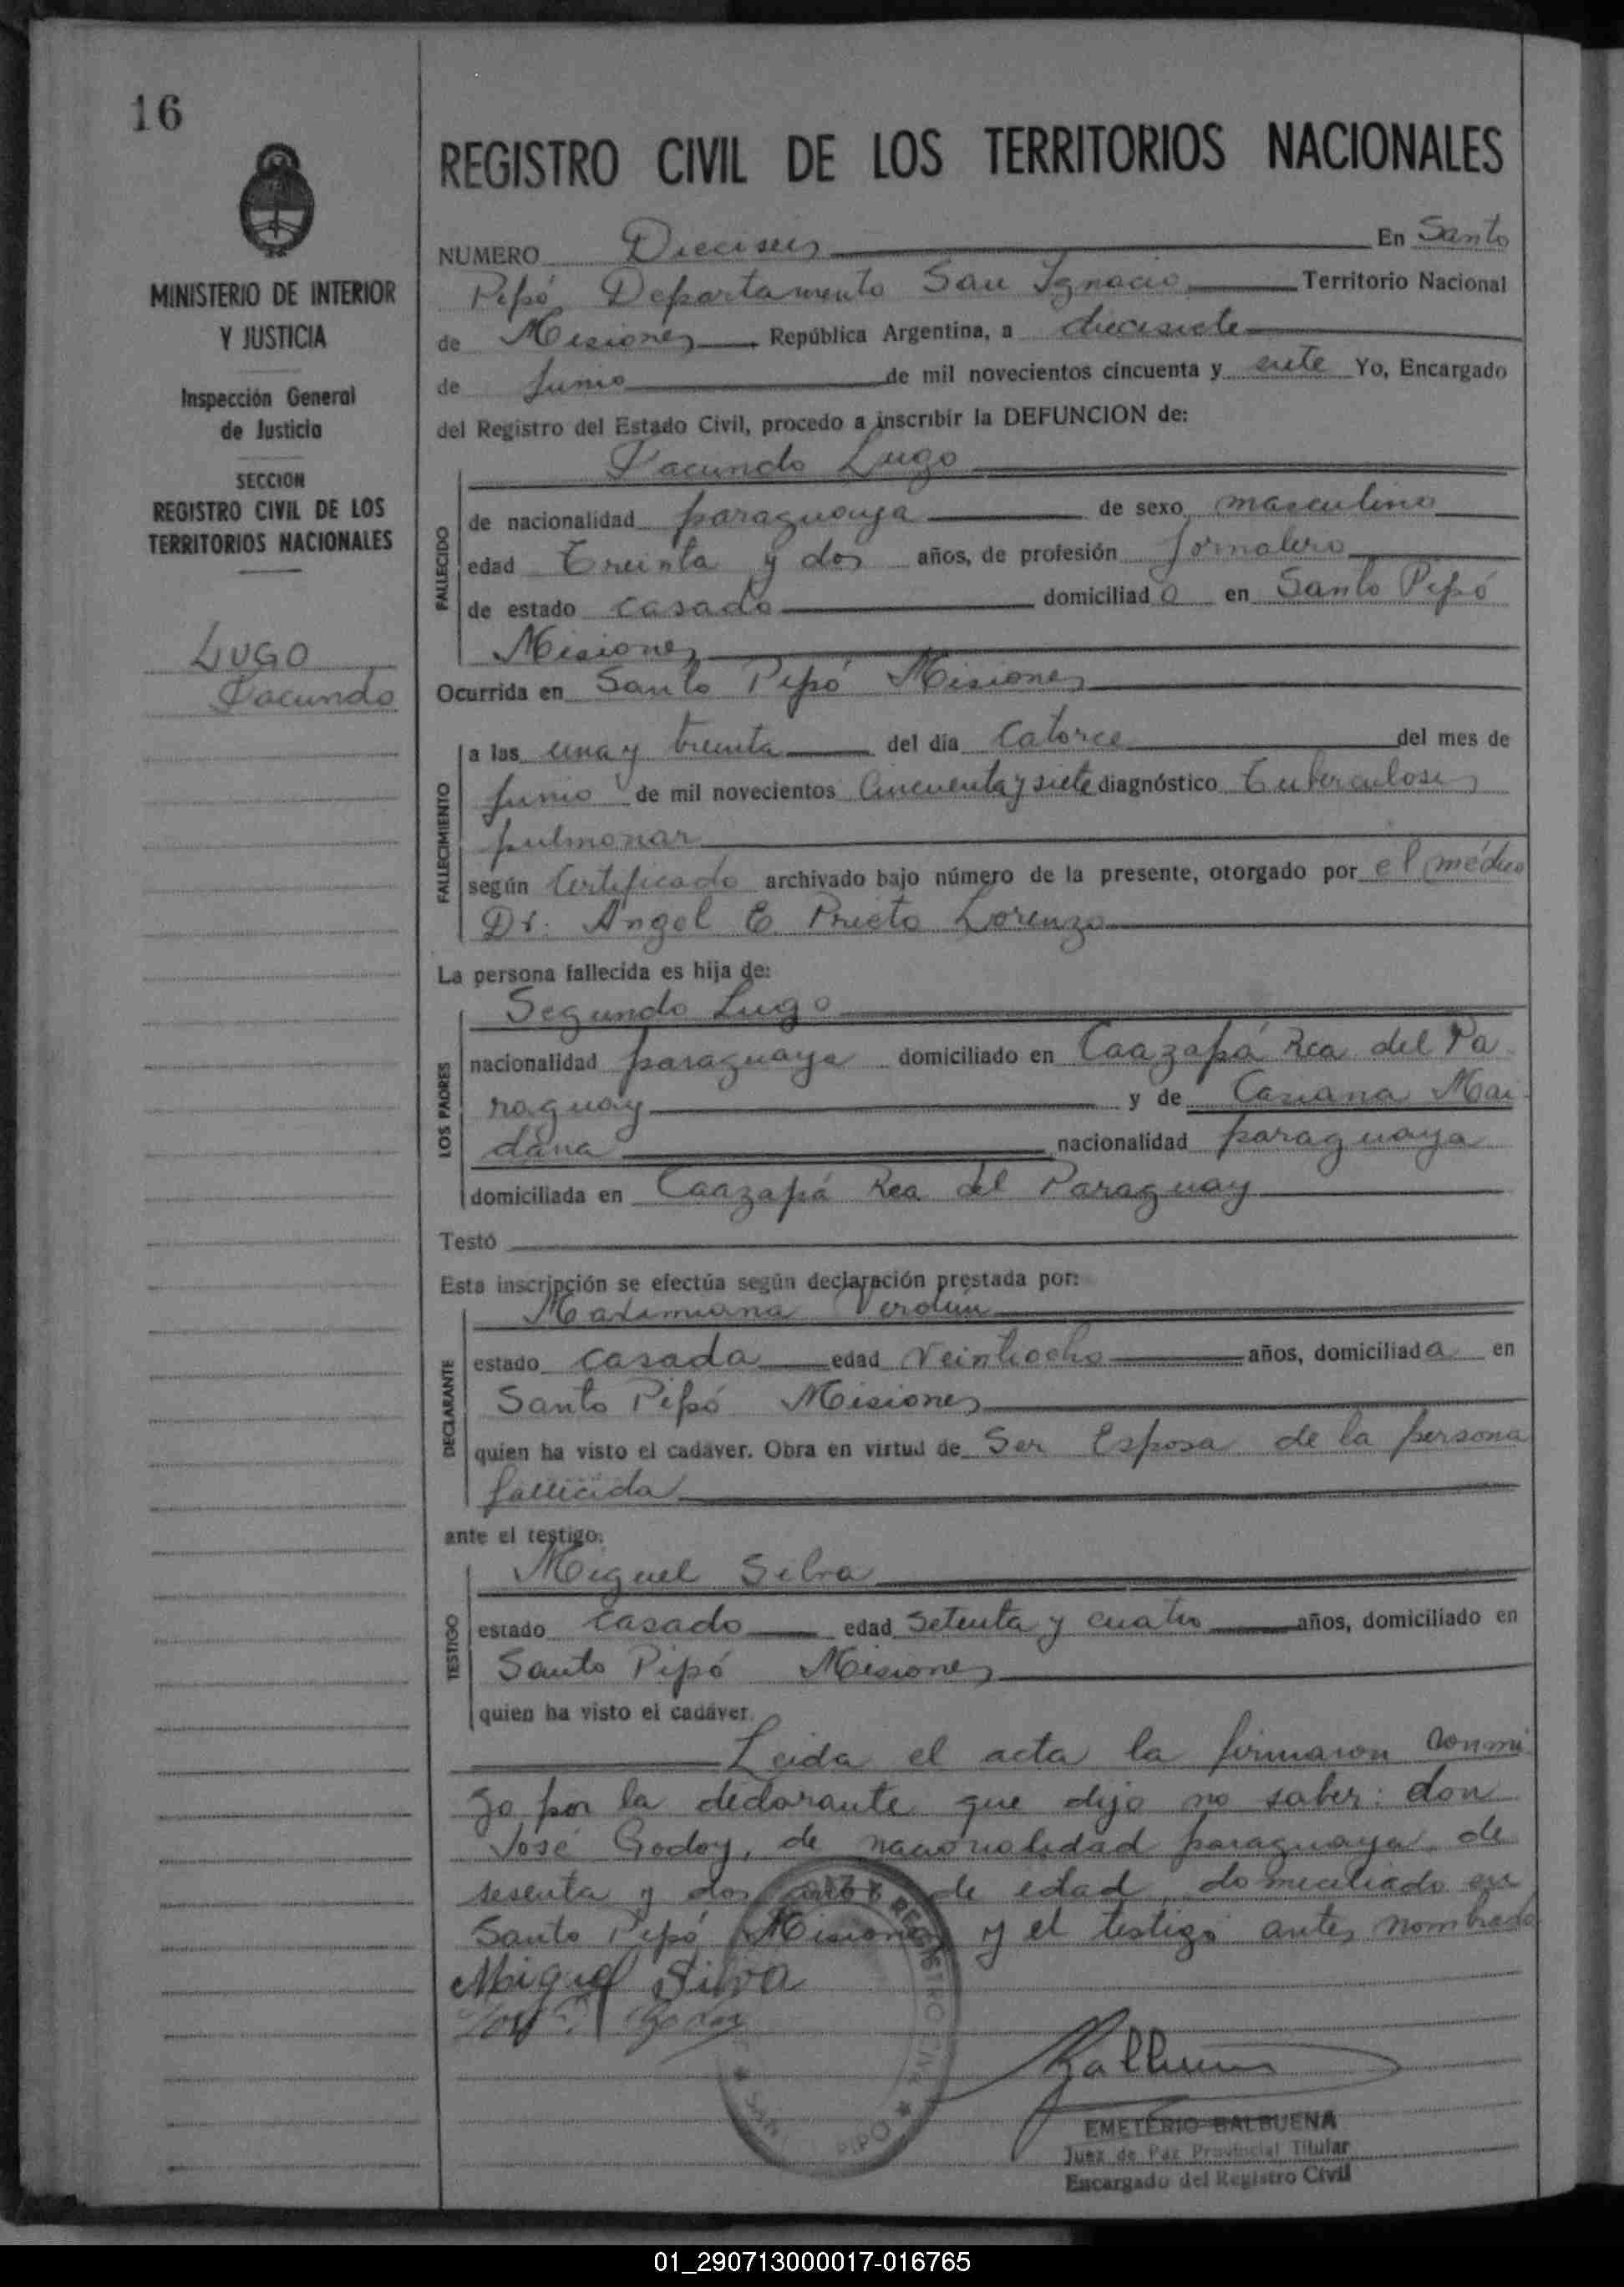 16
REGISTRO CIVIL DE LOS TERRITORIOS NACIONALES
MINISTERIO DE INTERIOR
Y JUSTICIA
Inspección General
de Justicia
SECCION
REGISTRO CIVIL DE LOS
TERRITORIOS NACIONALES
LUGO
Facundo
NUMERO Dieciseis En Santo
Pipó Departamento San Ignacio Territorio Nacional
de Misiones República Argentina, a diecisiete
de Junio de mil novecientos cincuenta y siete Yo, Encargado
del Registro del Estado Civil, procedo a inscribir la DEFUNCION de:
Facundo Lugo
FALLECIDO
de nacionalidad paraguaya de sexo masculino
edad Treinta y dos años, de profesión Jornalero
de estado casado domiciliado en Santo Pipó
Misiones
Ocurrida en Santo Pipó Misiones
FALLECIMIENTO
a las una y treinta del día Catorce del mes de
Junio de mil novecientos Cincuenta y siete diagnóstico Tuberculosis
pulmonar
según Certificado archivado bajo número de la presente, otorgado por el médico
Dr. Angel E. Prieto Lorenzo
La persona fallecida es hija de:
Segundo Lugo
LOS PADRES
nacionalidad paraguaya domiciliado en Caazapá Rca del Pa
raguay y de Casiana Mai
dana nacionalidad paraguaya
domiciliada en Caazapá Rca del Paraguay
Testó
Esta inscripción se efectúa según declaración prestada por:
Maximiana Verdun
DECLARANTE
estado casada edad Veintiocho años, domiciliada en
Santo Pipó Misiones
quien ha visto el cadáver. Obra en virtud de Ser Esposa de la persona
fallecida
ante el testigo:
Miguel Silva
TESTIGO
estado casado edad Setenta y cuatro años, domiciliado en
Santo Pipó Misiones
quien ha visto el cadáver.
Leida el acta la firmaron conmi
go por la declarante que dijo no saber: don
José Godoy, de nacionalidad paraguaya de
sesenta y dos años de edad, domiciliado en
Santo Pipó Misiones y el testigo antes nombrado
Miguel Silva
REGISTRO CIVIL
PIPO
EMETERIO BALBUENA
Juez de Paz Provincial Titular
Encargado del Registro Civil
01_290713000017-016765